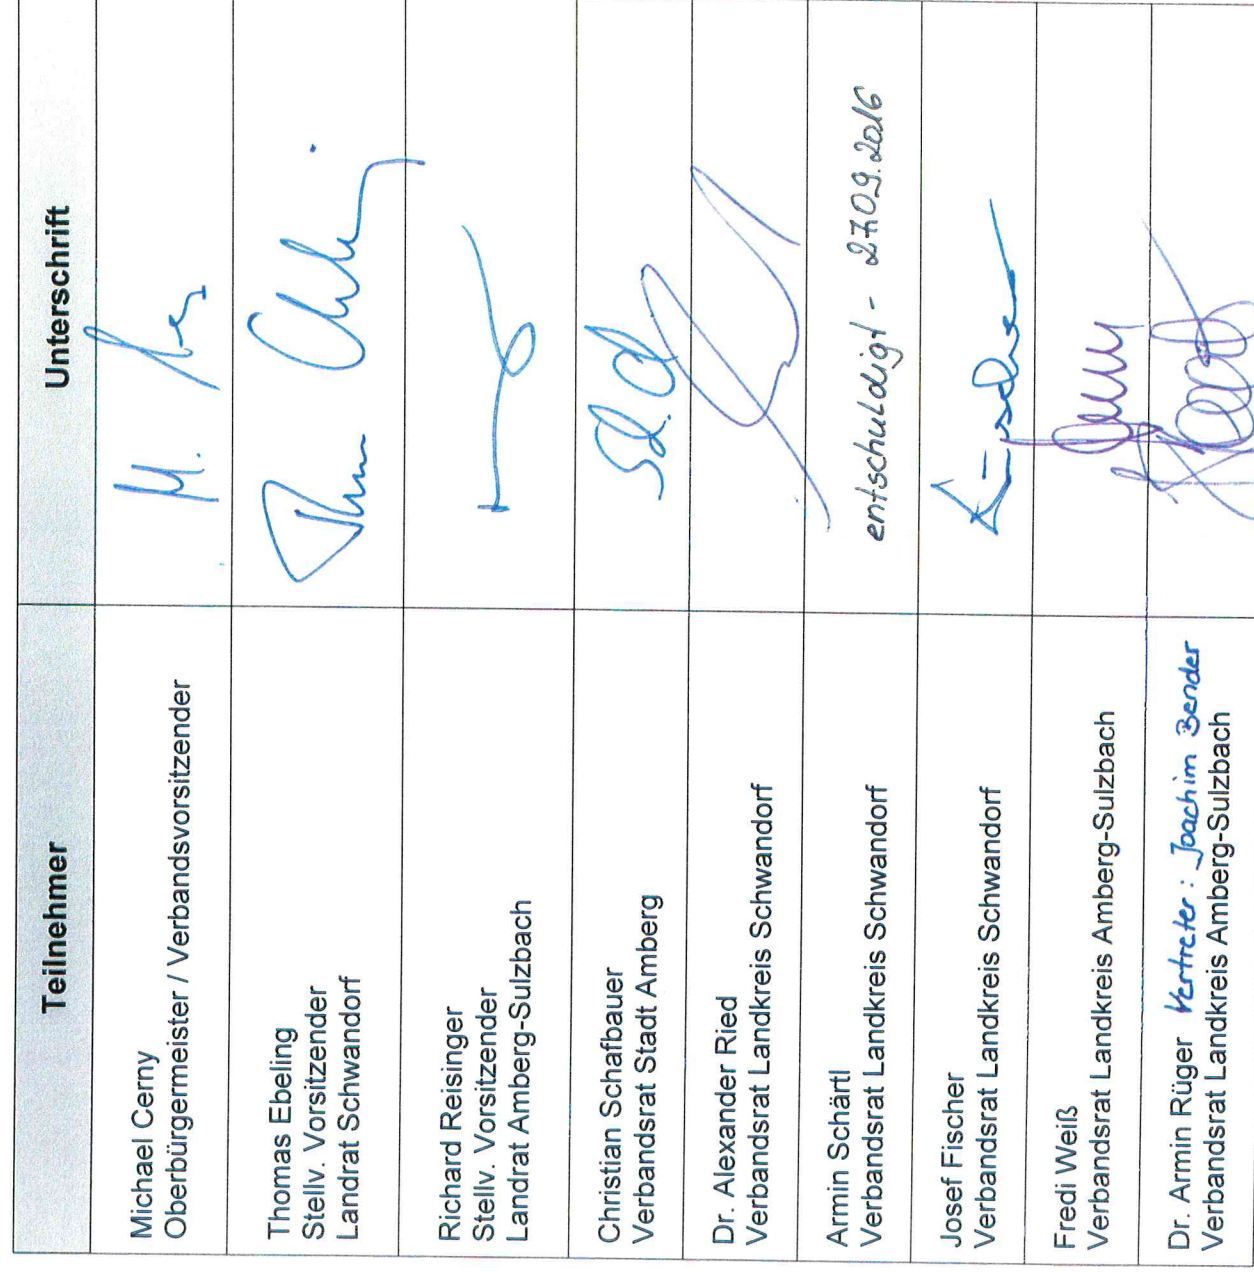 Teilnehmer Unterschrift
Michael Cerny
Oberbürgermeister / Verbandsvorsitzender
Thomas Ebeling
Stellv. Vorsitzender
Landrat Schwandorf
Richard Reisinger
Stellv. Vorsitzender
Landrat Amberg-Sulzbach
Christian Schafbauer
Verbandsrat Stadt Amberg
Dr. Alexander Ried
Verbandsrat Landkreis Schwandorf
Armin Schärtl
Verbandsrat Landkreis Schwandorf
entschuldigt - 27.09.2016
Josef Fischer
Verbandsrat Landkreis Schwandorf
Fredi Weiß
Verbandsrat Landkreis Amberg-Sulzbach
Dr. Armin Rüger Vertreter: Joachim Bender
Verbandsrat Landkreis Amberg-Sulzbach